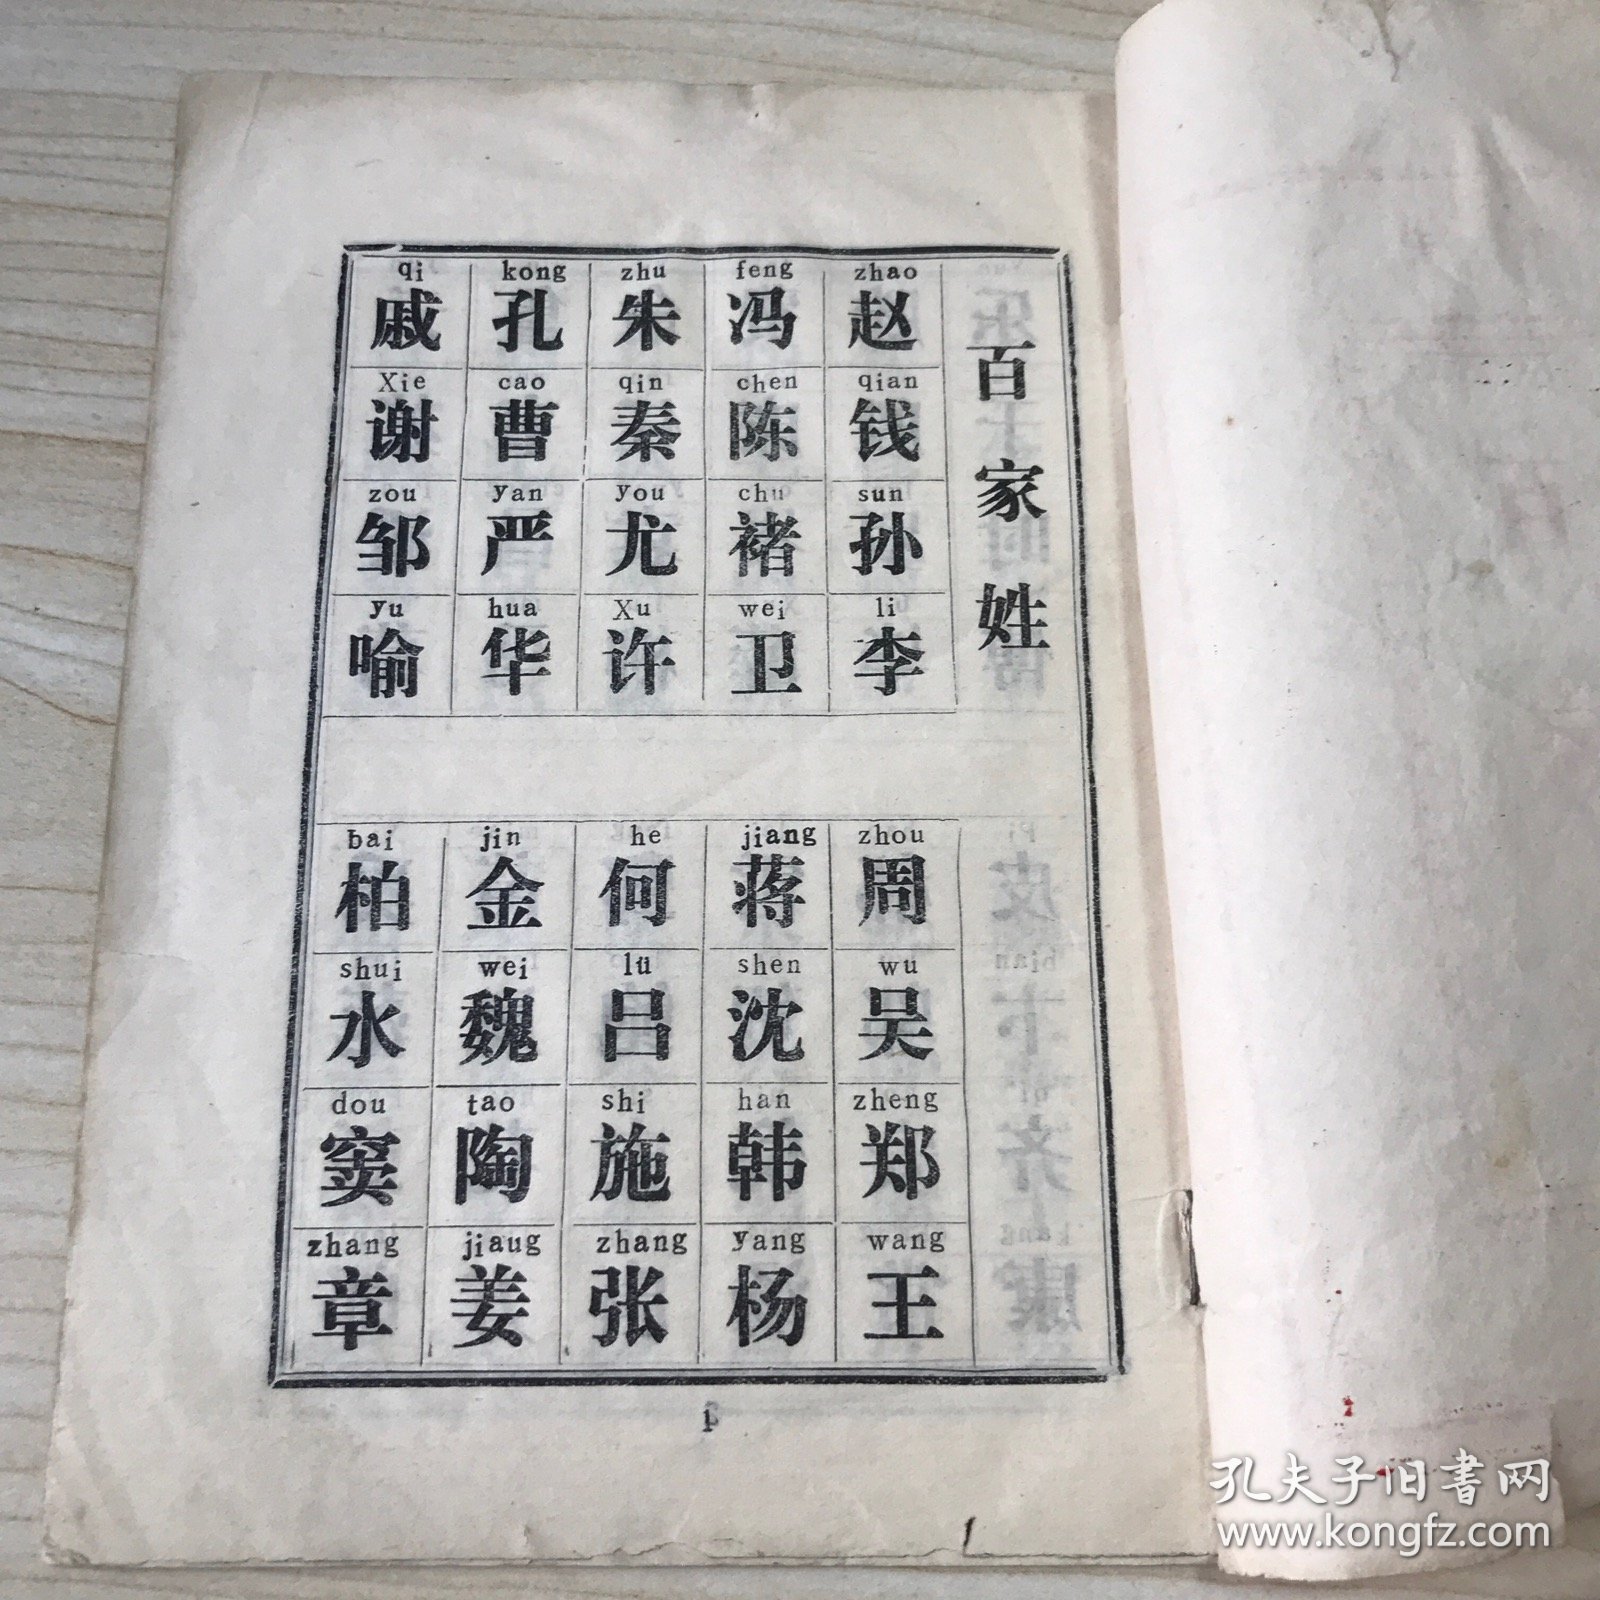 百家姓
zhao qian sun li
赵钱孙李
zhou wu zheng wang
周吴郑王
feng chen chu wei
冯陈褚卫
jiang shen han yang
蒋沈韩杨
zhu qin you Xu
朱秦尤许
he lü shi zhang
何吕施张
kong cao yan hua
孔曹严华
jin wei tao jiaug
金魏陶姜
qi Xie zou yu
戚谢邹喻
bai shui dou zhang
柏水窦章
1
孔夫子旧书网
www.kongfz.com